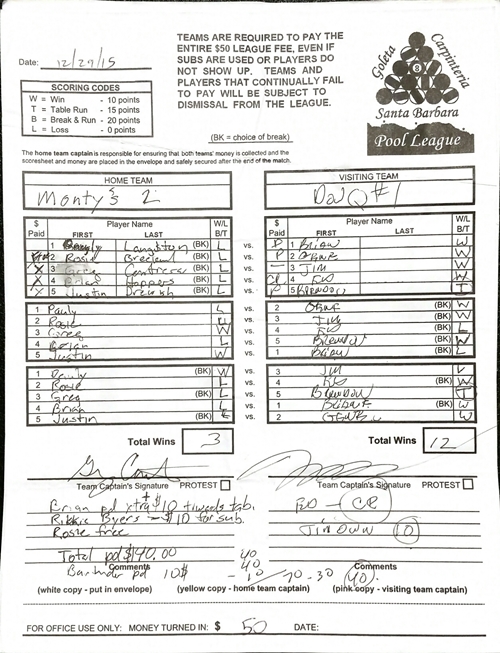 Date: 12/29/15
TEAMS ARE REQUIRED TO PAY THE
ENTIRE $50 LEAGUE FEE, EVEN IF
SUBS ARE USED OR PLAYERS DO
NOT SHOW UP. TEAMS AND
PLAYERS THAT CONTINUALLY FAIL
TO PAY WILL BE SUBJECT TO
DISMISSAL FROM THE LEAGUE.
Goleta Carpinteria
8
Santa Barbara
Pool League
SCORING CODES
W = Win - 10 points
T = Table Run - 15 points
B = Break & Run - 20 points
L = Loss - 0 points
(BK = choice of break)
The home team captain is responsible for ensuring that both teams' money is collected and the
scoresheet and money are placed in the envelope and safely secured after the end of the match.
HOME TEAM
Monty's 2
VISITING TEAM
DaJQ#1
$ Paid Player Name FIRST LAST W/L B/T
1 Langston (BK) L vs. P 1 BRIAN W
2 Rosie (BK) L vs. P 2 W
X 3 Greg Contreras (BK) L vs. 3 JIM W
X 4 Brian Hoppers (BK) L vs. 4 ED W
X 5 Justin (BK) L vs. P 5 BRENDON T
1 Pauly L vs. 2 (BK) W
2 Rosie vs. 3 JIM (BK)
3 Greg W vs. 4 ED (BK) L
4 Brian L vs. 5 BRENDON (BK) W
5 Justin W vs. 1 BRIAN (BK) L
1 Pauly (BK) W vs. 3 JIM L
2 Rosie (BK) L vs. 4 ED W
3 Greg (BK) L vs. 5 BRENDON T
4 Brian (BK) L vs. 1 W
5 Justin (BK) vs. 2 W
Total Wins 3
Total Wins 12
Team Captain's Signature PROTEST
Team Captain's Signature PROTEST
Brian pd xtra $10 towards tab.
Rikkie Byers - $10 for sub.
Rosie free
Total pd $140.00
Comments
pd 10$
ED - CP
JIM OWN 10
40
40
-10 70-30 40
Comments
(white copy - put in envelope) (yellow copy - home team captain) (pink copy - visiting team captain)
FOR OFFICE USE ONLY: MONEY TURNED IN: $ 50 DATE: